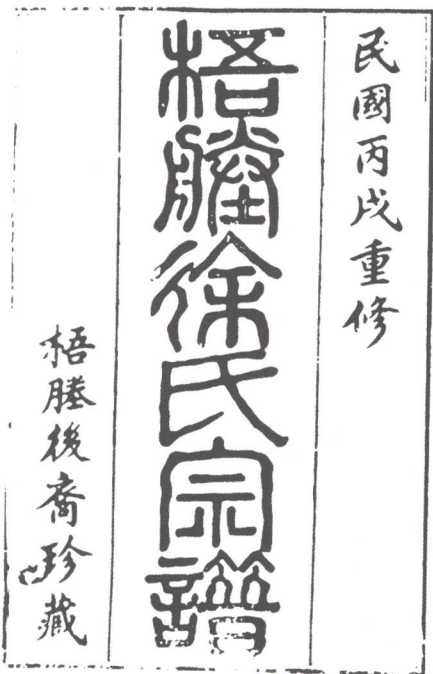 民國丙戌重修
梧塍徐氏宗譜
梧塍後裔珍藏